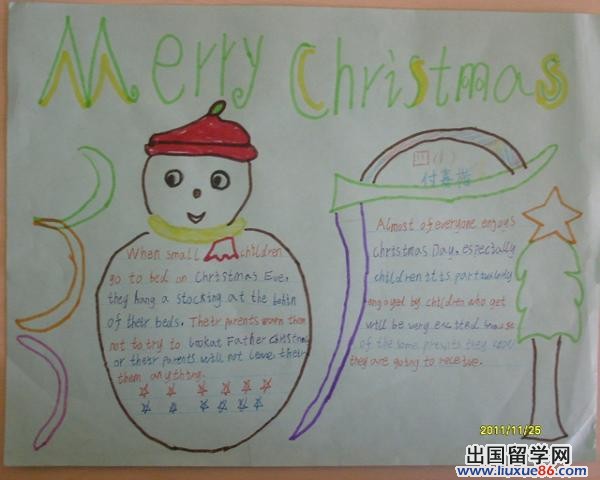 Merry Christmas
When small children
go to bed on Christmas Eve,
they hang a stocking at the
of their beds. Their parents them
not to try to look at Father Christmas
or their parents will not leave their
them anything.
四(1)
付嘉楷
Almost of everyone enjoys
Christmas Day, especially
children it is particularly
enjoyed by children who get
will be very excited because
of the some presents they know
they are going to receive.
2011/11/25
出国留学网
www.liuxue86.com